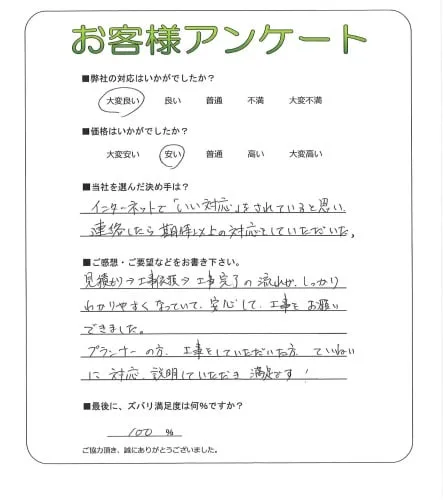 お客様アンケート
■弊社の対応はいかがでしたか?
大変良い 良い 普通 不満 大変不満
■価格はいかがでしたか?
大変安い 安い 普通 高い 大変高い
■当社を選んだ決め手は?
インターネットで「いい対応」をされていると思い、
連絡したら期待以上の対応をしていただいた。
■ご感想・ご要望などをお書き下さい。
見積り→工事依頼→工事完了の流れが、しっかり
わかりやすくなっていて、安心して、工事を お願い
できました。
プランナーの方、工事をしていただいた方、ていねい
に対応、説明していただき満足です!
■最後に、ズバリ満足度は何%ですか?
100 %
ご協力頂き、誠にありがとうございました。